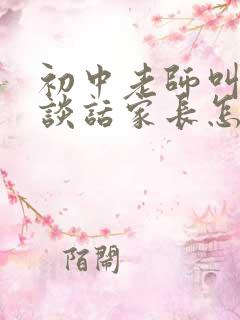 初中老師叫
談話家長怎
陌鬧